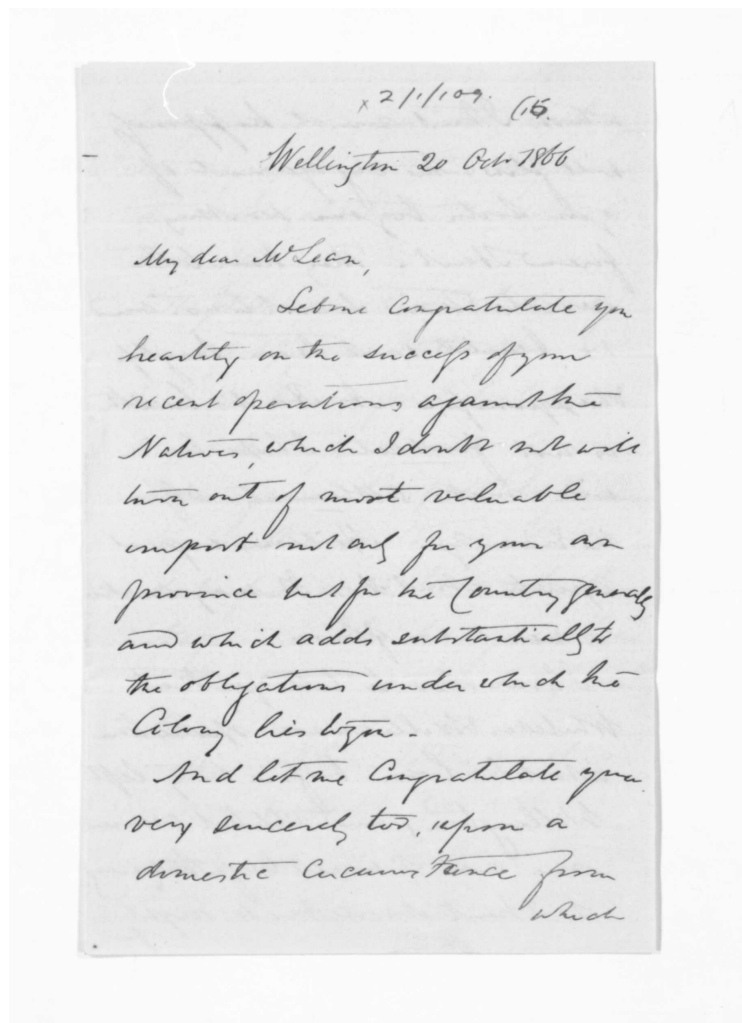 x 2/1/109. (15.
Wellington 20 Octr 1866
My dear McLean,
Let me Congratulate you
heartily on the success of your
recent operations against the
Natives, which I doubt not will
turn out of most valuable
import not only for your own
province but for the Country generally
and which adds substantially to
the obligations under which the
Colony lies to you.
And let me Congratulate you
very sincerely too, upon a
domestic Circumstance from
which